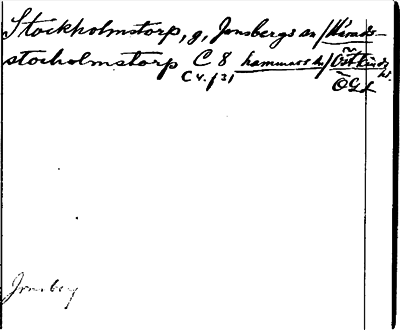 Stockholmstorp, g, Jonsbergs sn/Härads-
stocholmstorp C 8 hammars h/Östkinds h.
C v. f 31 ÖGd
Jonsberg